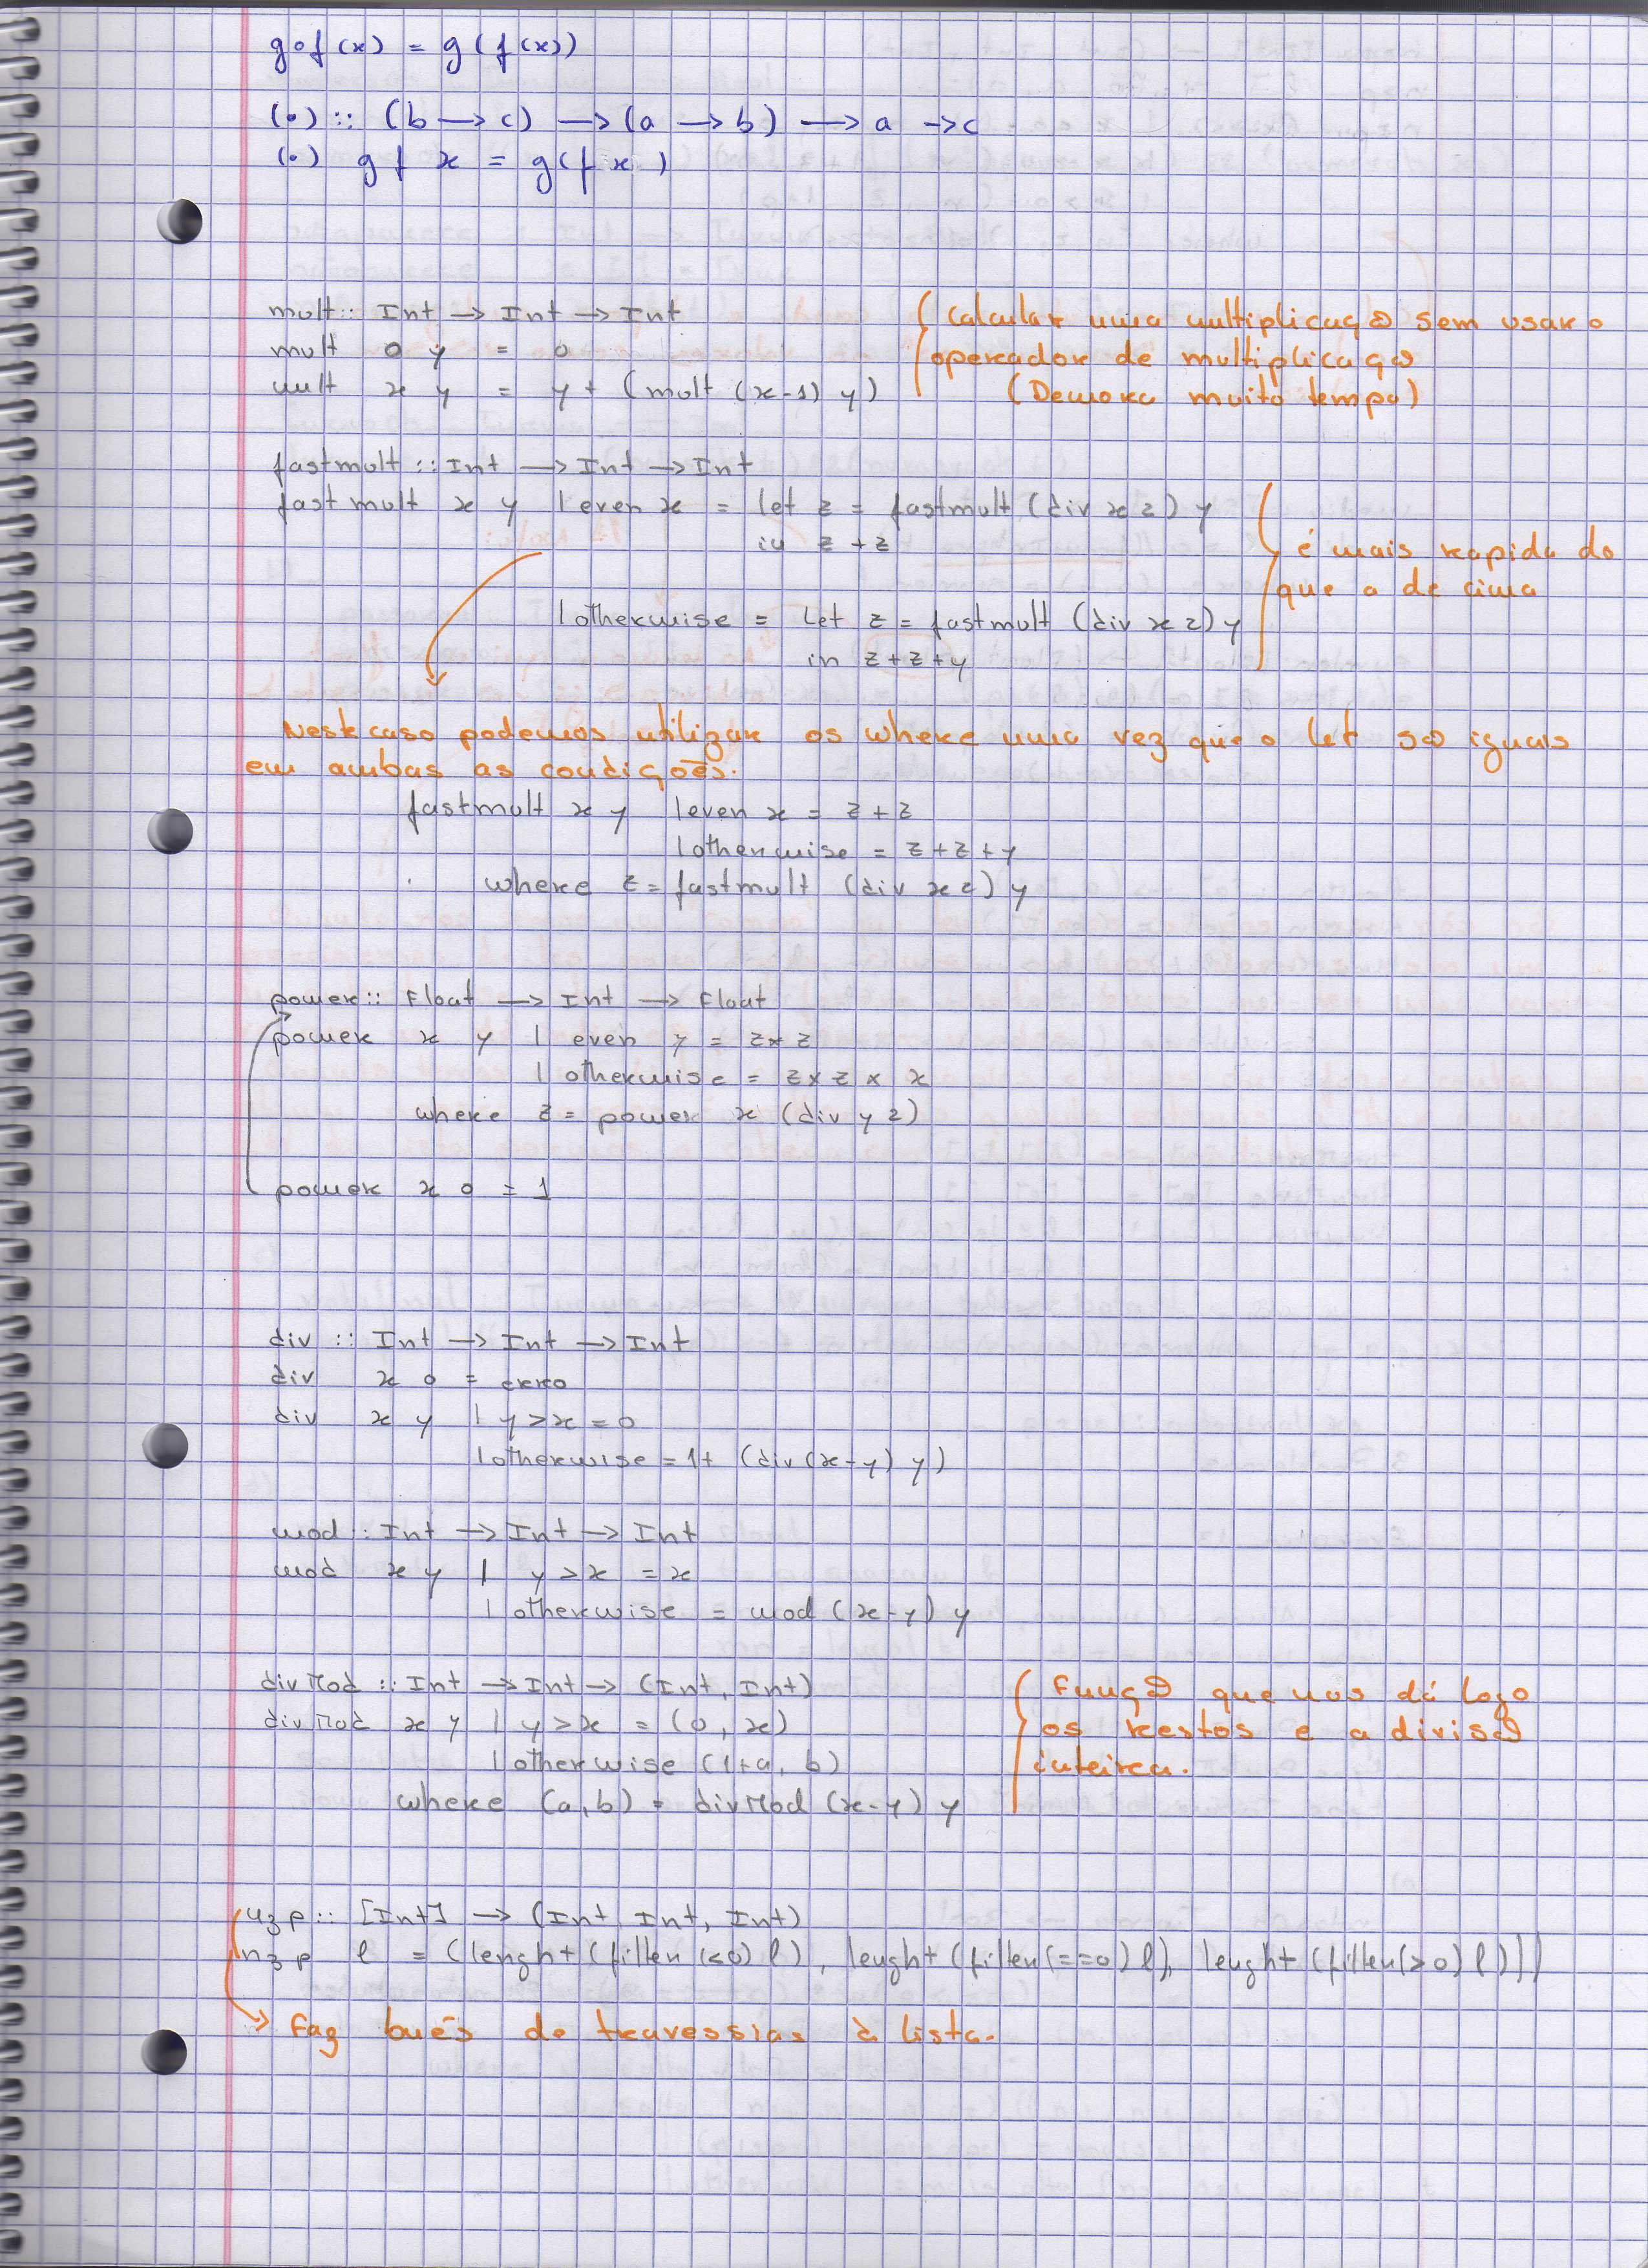 g∘f(x) = g(f(x))
(•) :: (b → c) → (a → b) → a → c
(•) g f x = g(f x)
mult :: Int → Int → Int
mult 0 y = 0
mult x y = y + (mult (x-1) y)
(Calcular uma multiplicação sem usar o
operador de multiplicação
(Demora muito tempo)
fastmult :: Int → Int → Int
fastmult x y | even x = let z = fastmult (div x 2) y
in z + z
| otherwise = let z = fastmult (div x 2) y
in z + z + y
é mais rapida do
que a de cima
Neste caso podemos utilizar os where uma vez que o let são iguais
em ambas as condições.
fastmult x y | even x = z + z
| otherwise = z + z + y
where z = fastmult (div x 2) y
power :: Float → Int → Float
power x y | even y = z * z
| otherwise = z * z * x
where z = power x (div y 2)
power x 0 = 1
div :: Int → Int → Int
div x 0 = erro
div x y | y > x = 0
| otherwise = 1 + (div (x-y) y)
mod :: Int → Int → Int
mod x y | y > x = x
| otherwise = mod (x-y) y
divMod :: Int → Int → (Int, Int)
divMod x y | y > x = (0, x)
| otherwise (1+a, b)
where (a, b) = divMod (x-y) y
Função que nos dá logo
os restos e a divisão
inteira.
nzp :: [Int] → (Int, Int, Int)
nzp l = (lenght (filter (<0) l), lenght (filter (==0) l), lenght (filter (>0) l)))
Faz bués de travessias à lista.